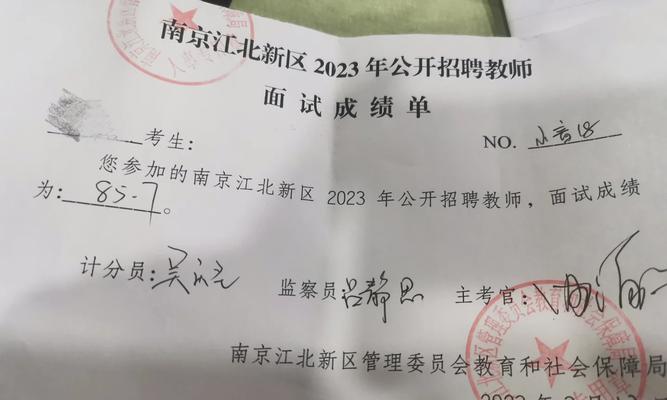 南京江北新区 2023 年公开招聘教师
面试成绩单
考生：
NO. 小音18
您参加的南京江北新区 2023 年公开招聘教师，面试成绩
为：85.7。
计分员：
监察员：吕静思
主考官：
南京江北新区管理委员会教育和社会保障局